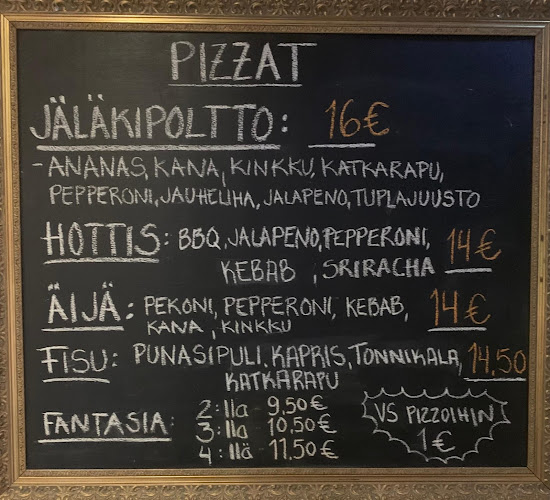 PIZZAT
JÄLÄKIPOLTTO: 16€
- ANANAS, KANA, KINKKU, KATKARAPU,
PEPPERONI, JAUHELIHA, JALAPENO, TUPLAJUUSTO
HOTTIS: BBQ, JALAPENO, PEPPERONI,
KEBAB, SRIRACHA 14€
ÄIJÄ: PEKONI, PEPPERONI, KEBAB, 14€
KANA, KINKKU
FISU: PUNASIPULI, KAPRIS, TONNIKALA, 14,50
KATKARAPU
FANTASIA: 2:lla 9,50€
3:lla 10,50€
4:llä 11,50€
VS PIZZOIHIN
1€